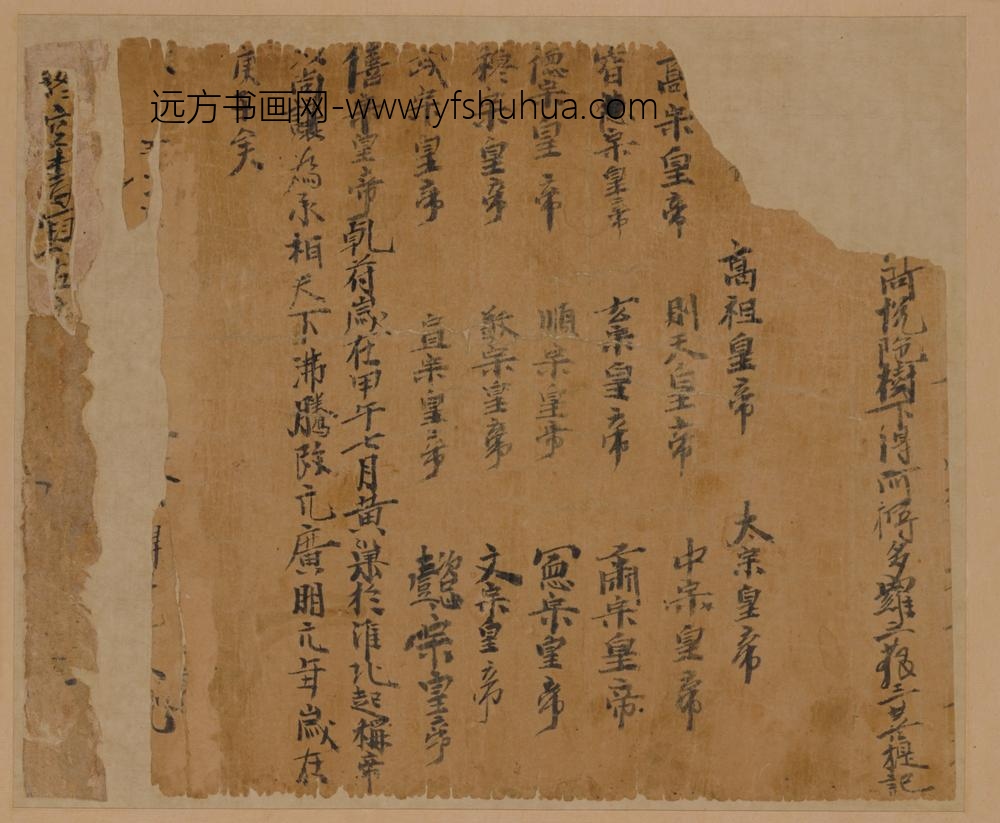 尚恍陁樹下得阿褥多羅三藐三菩提記
高祖皇帝 太宗皇帝
高宗皇帝 則天皇帝 中宗皇帝
睿宗皇帝 玄宗皇帝 肅宗皇帝
德宗皇帝 順宗皇帝 憲宗皇帝
穆宗皇帝 敬宗皇帝 文宗皇帝
武宗皇帝 宣宗皇帝 懿宗皇帝
僖宗皇帝 乹苻歲在甲午七月黃巢於淮北起稱帝
以尚讓為丞相天下沸騰改元廣明元年歲在
庚子矣
远方书画网-www.yfshuhua.com